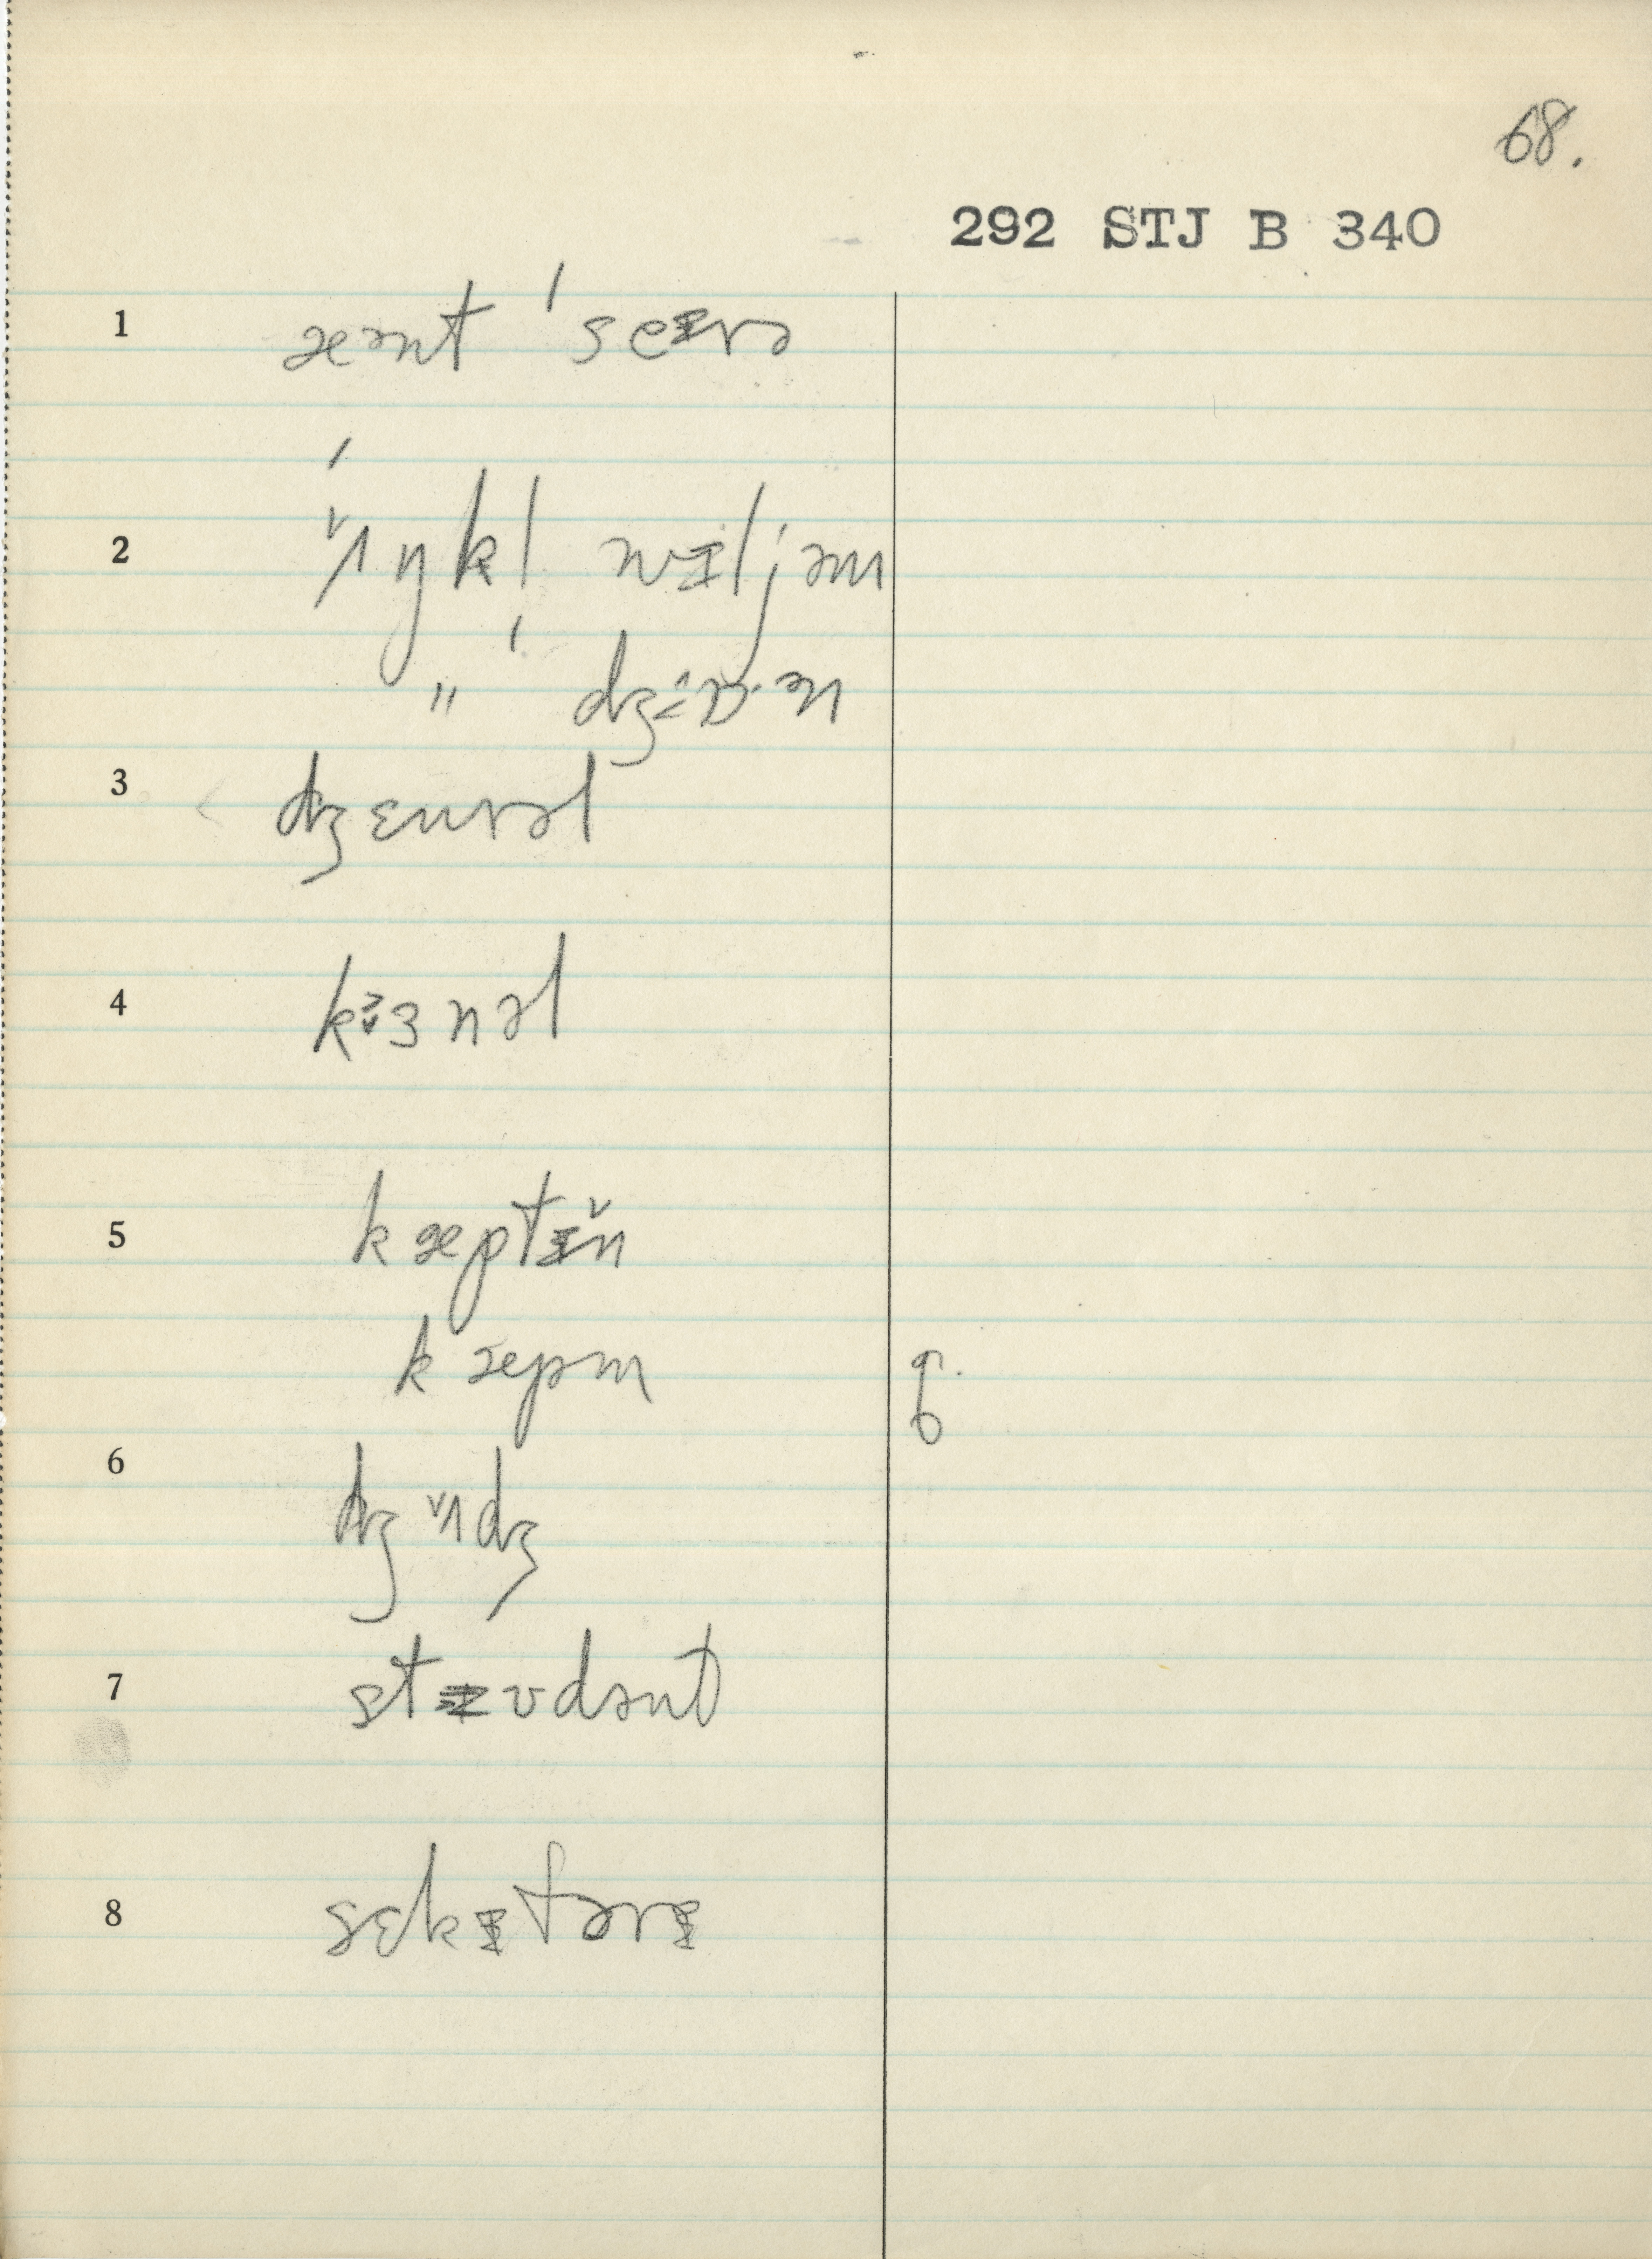 68.
292 STJ B 340
1 æənt ˈseɪrə
2 ˈʌ̌ŋkl wɪljəm
" ˈdʒɒːən
3 dʒɛnrəl
4 kɜnəl
5 kæptɪ̆n
kæpm
6 dʒʌ̌dʒ
7 stɪʊdənt
8 sɛkɪtərɪ